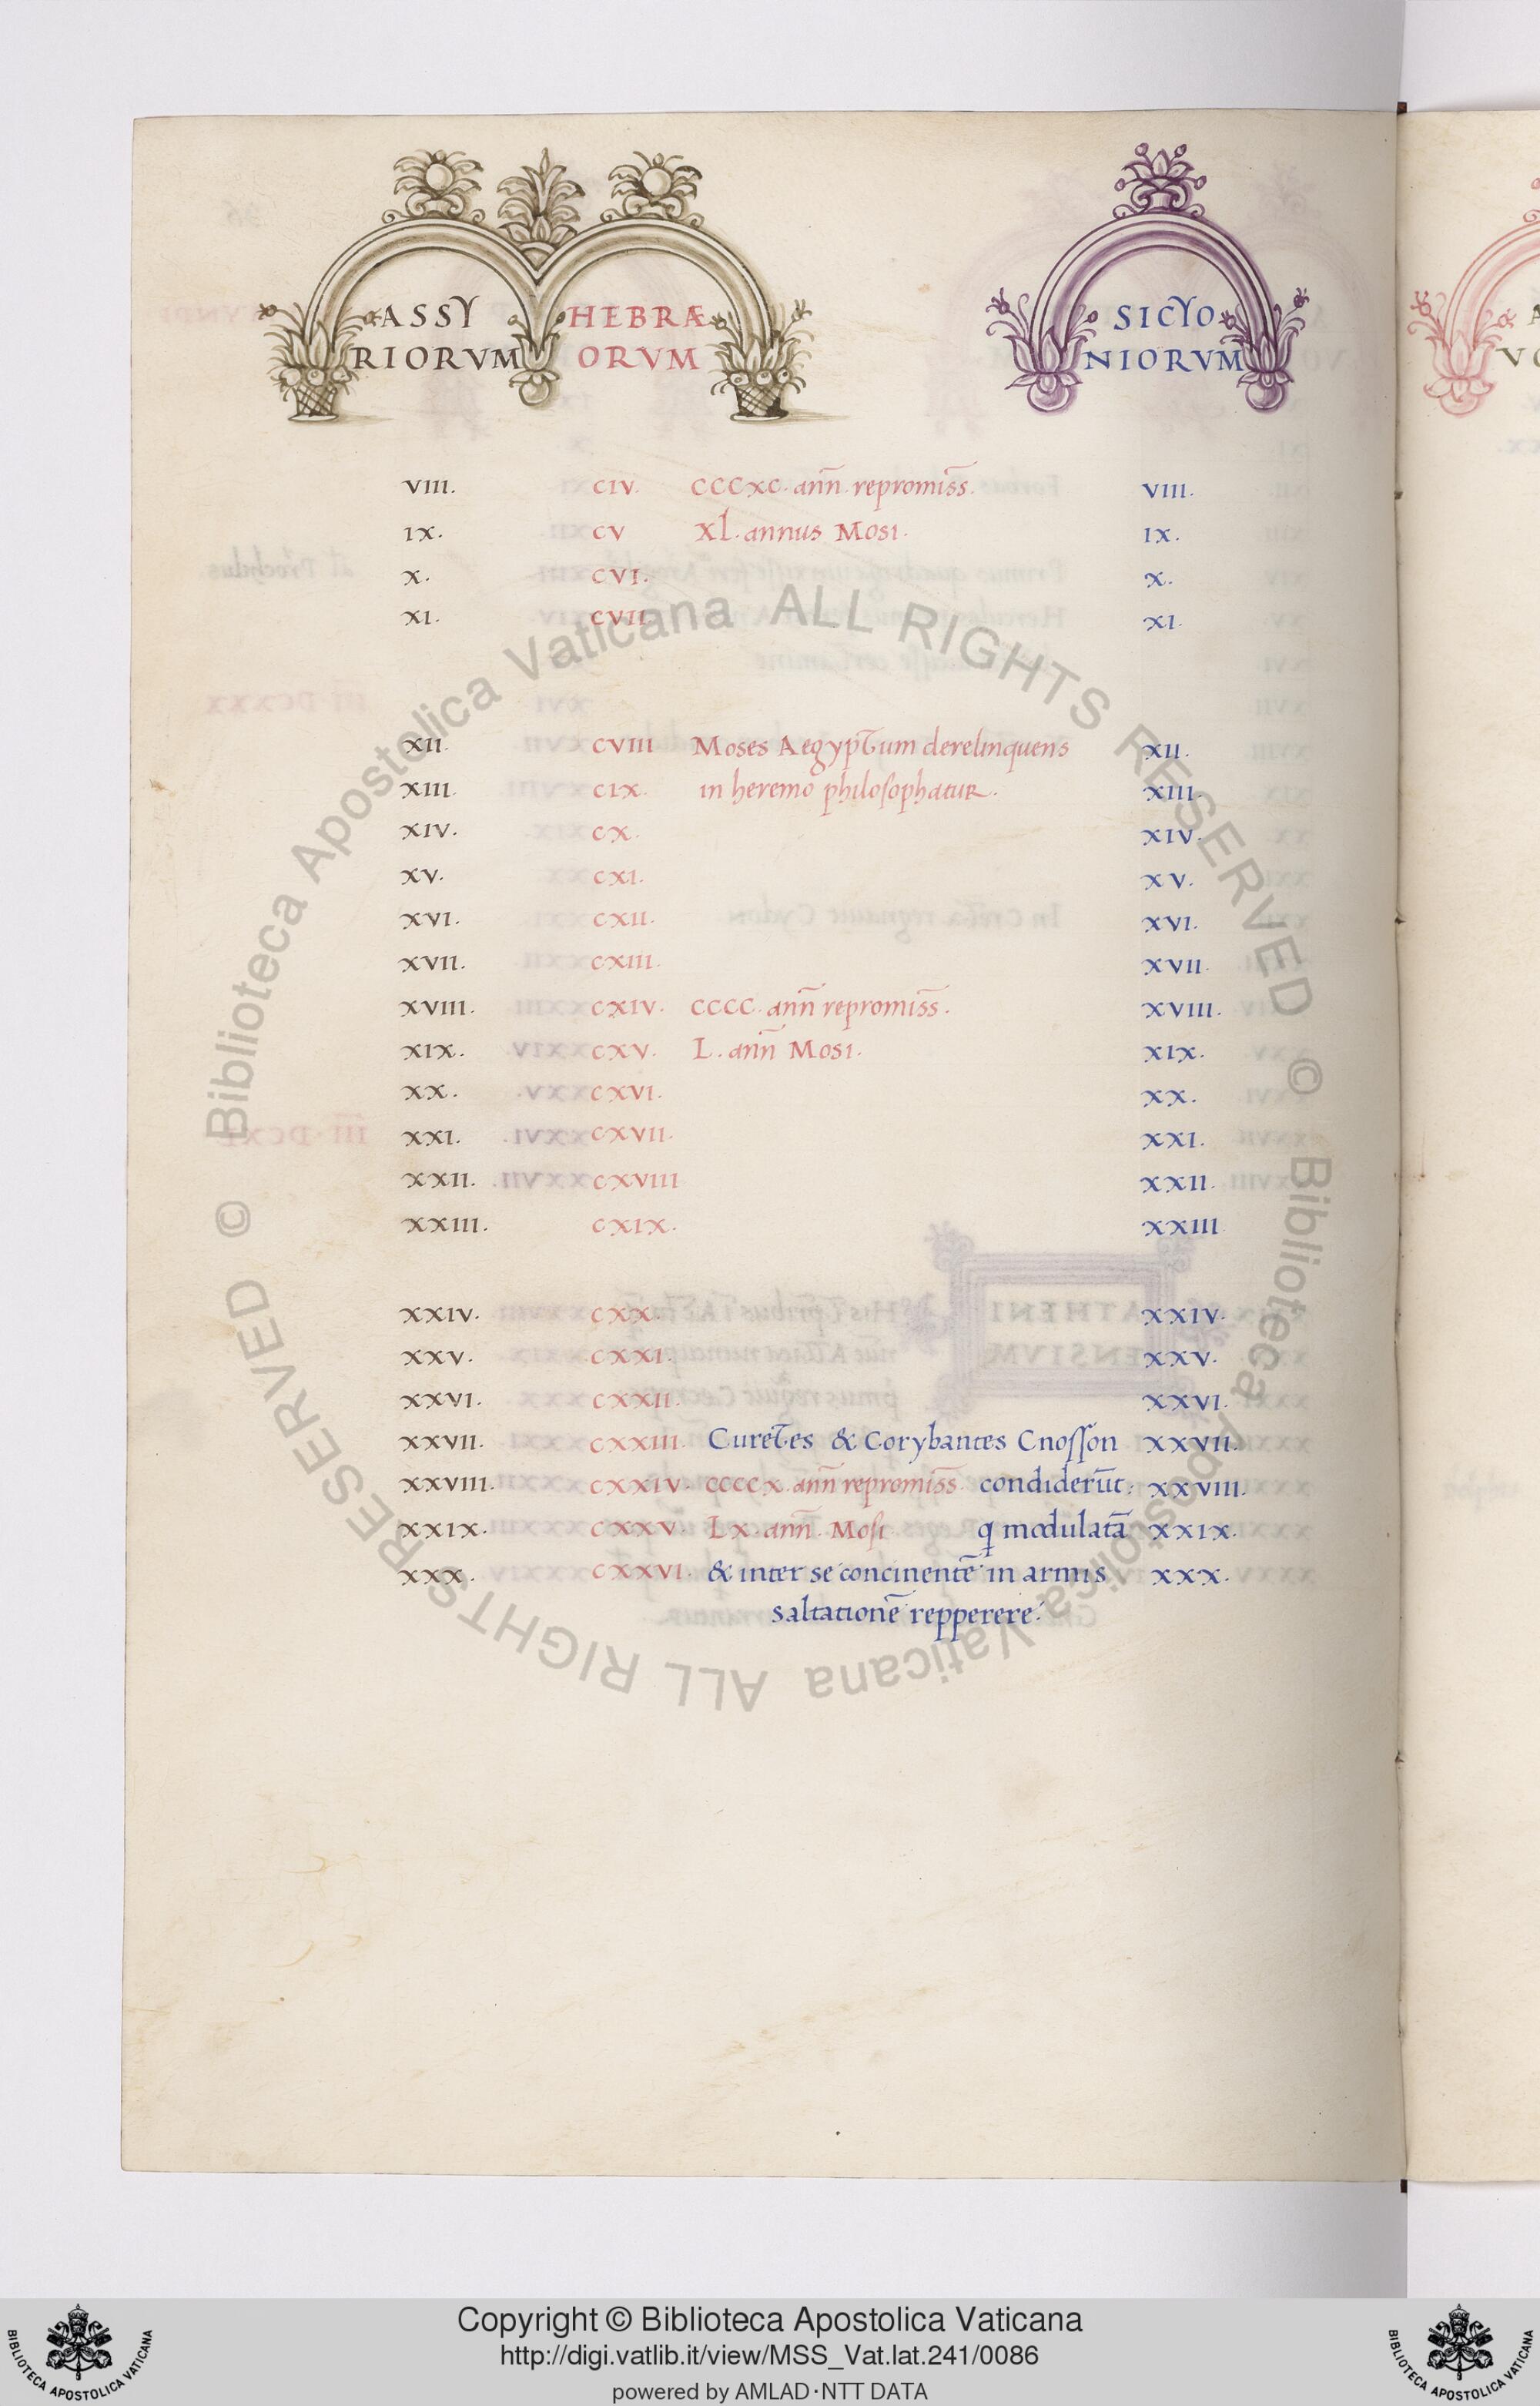 ASSY HEBRÆ SICYO
RIORVM ORVM NIORVM
VIII. CIV. CCCXC. an̄n. repromis̄s. VIII.
IX. CV XL. annus Mosi. IX.
X. CVI. X.
XI. CVII. XI.
XII. CVIII Moses Aegyptum derelinquens XII.
XIII. CIX. in heremo philosophatur. XIII.
XIV. CX. XIV.
XV. CXI. XV.
XVI. CXII. XVI.
XVII. CXIII. XVII.
XVIII. CXIV. CCCC. an̄n repromis̄s. XVIII.
XIX. CXV. L. an̄n Mosi. XIX.
XX. CXVI. XX.
XXI. CXVII. XXI.
XXII. CXVIII XXII.
XXIII. CXIX. XXIII
XXIV. CXX. XXIV.
XXV. CXXI. XXV.
XXVI. CXXII. XXVI.
XXVII. CXXIII. Curetes & Corybantes Cnoſſon XXVII.
XXVIII. CXXIV. CCCCX. an̄n repromis̄s. condiderūt: XXVIII.
XXIX. CXXV. LX. an̄n. Moſi q modulatā XXIX.
XXX. CXXVI. & inter se concinentē in armis XXX.
saltationē repperere.
© Biblioteca Apostolica Vaticana ALL RIGHTS RESERVED
© Biblioteca Apostolica Vaticana ALL RIGHTS RESERVED
Copyright © Biblioteca Apostolica Vaticana
http://digi.vatlib.it/view/MSS_Vat.lat.241/0086
powered by AMLAD·NTT DATA
BIBLIOTECA APOSTOLICA VATICANA
BIBLIOTECA APOSTOLICA VATICANA